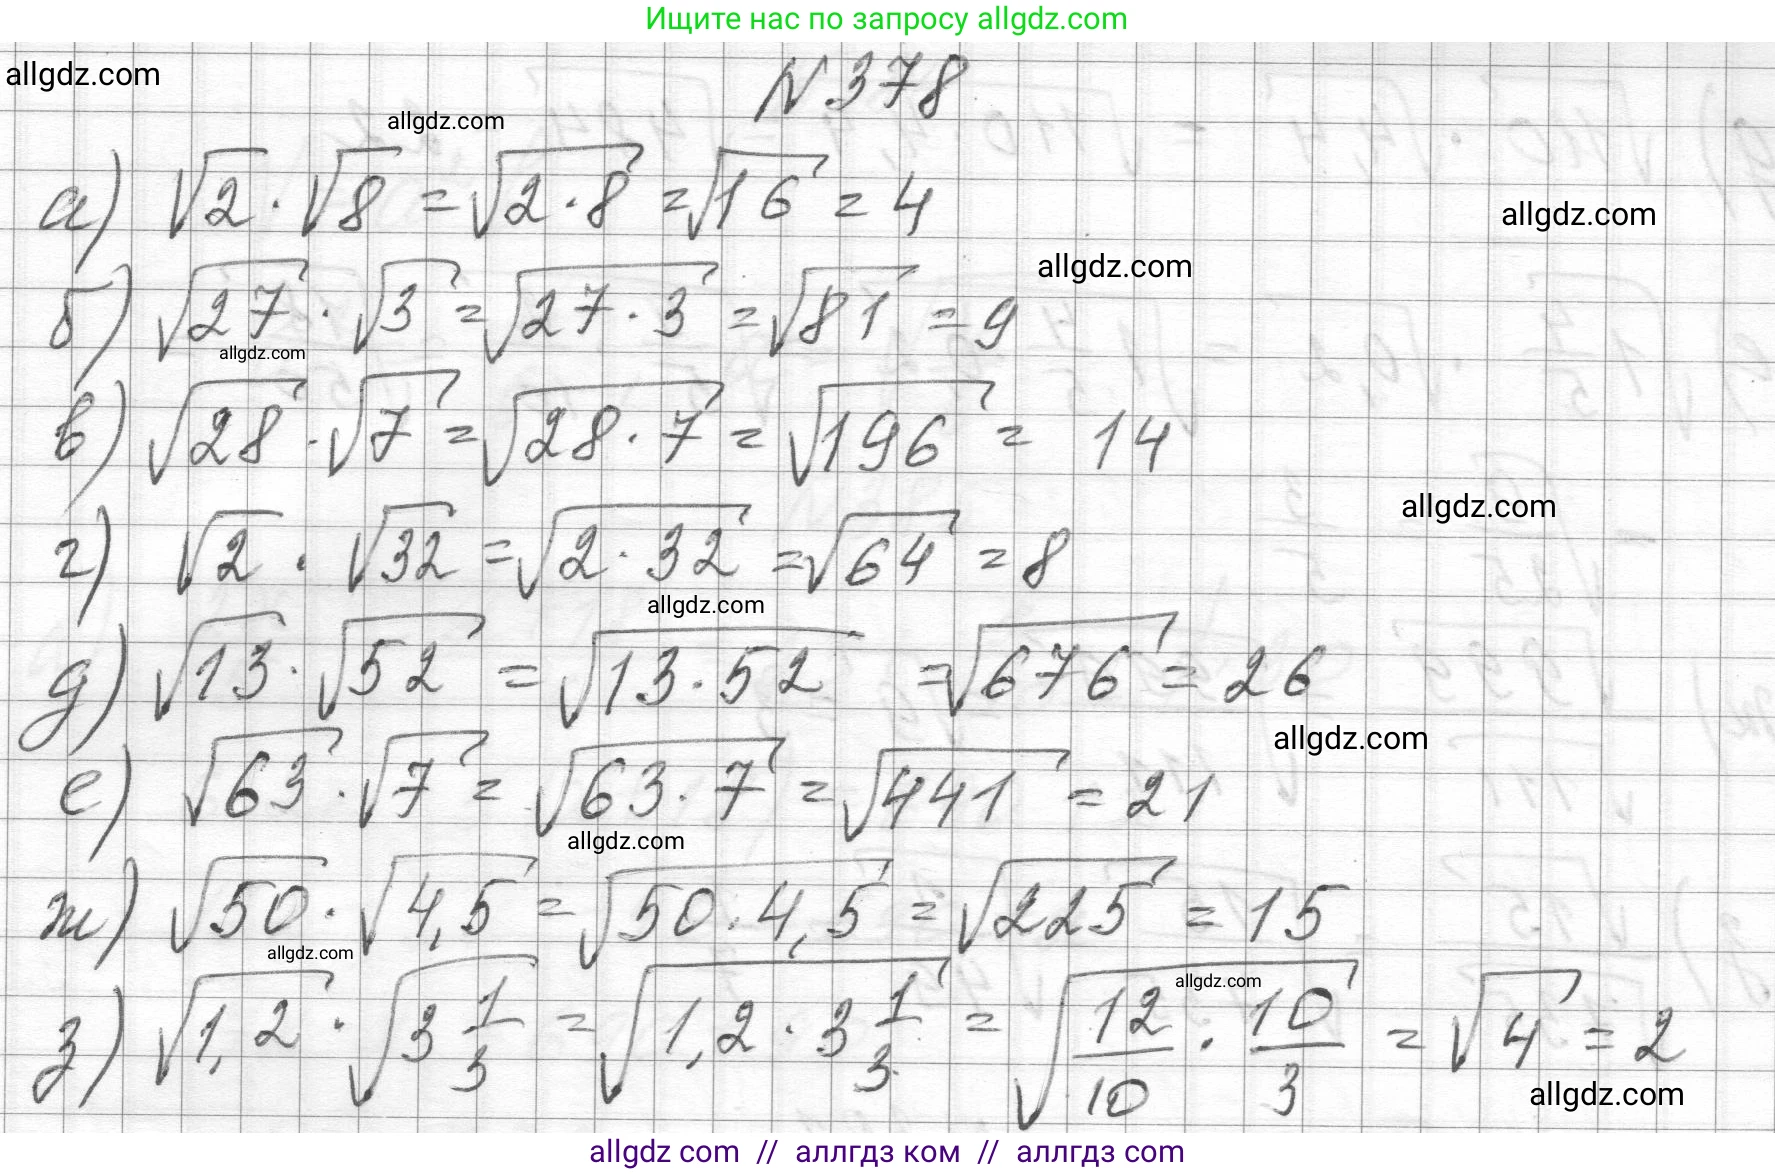 Ищите нас по запросу allgdz.com
allgdz.com
N 378
allgdz.com
а) √2 · √8 = √2·8 = √16 = 4
allgdz.com
allgdz.com
б) √27 · √3 = √27·3 = √81 = 9
allgdz.com
в) √28 · √7 = √28·7 = √196 = 14
allgdz.com
г) √2 · √32 = √2·32 = √64 = 8
allgdz.com
д) √13 · √52 = √13·52 = √676 = 26
allgdz.com
е) √63 · √7 = √63·7 = √441 = 21
allgdz.com
ж) √50 · √4,5 = √50·4,5 = √225 = 15
allgdz.com
allgdz.com
з) √1,2 · √3 1/3 = √1,2 · 3 1/3 = √12/10 · 10/3 = √4 = 2
allgdz.com
allgdz com // аллгдз ком // аллгдз com